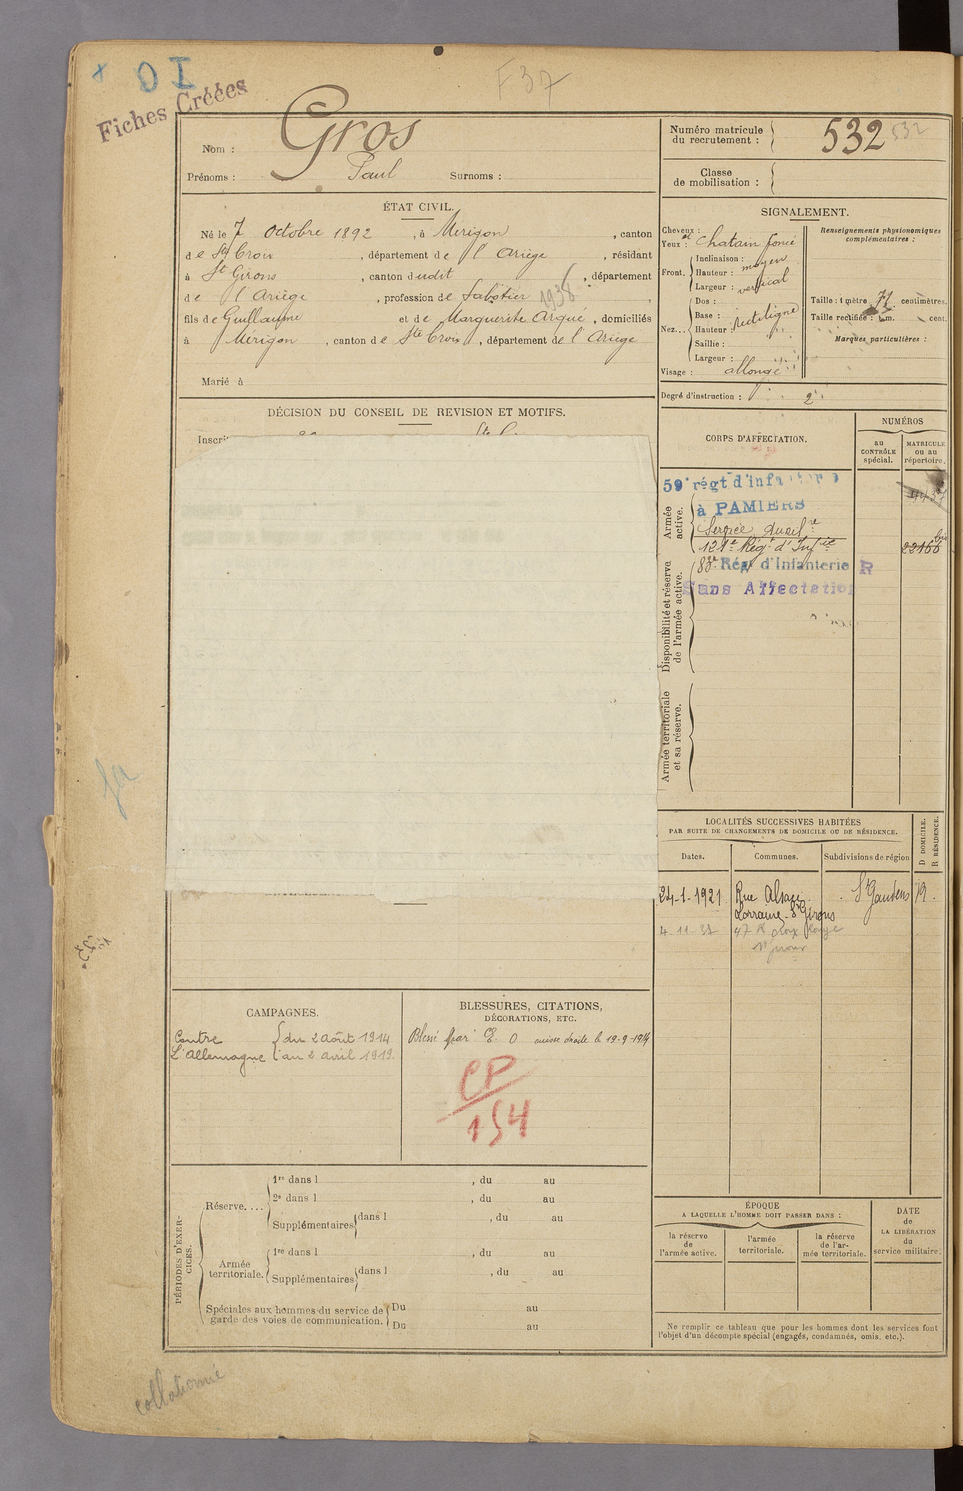 OI
Fiches Créées
F 37
Nom : Gros
Prénoms : Paul Surnoms :
ÉTAT CIVIL.
Né le 7 Octobre 1892, à Mérigon, canton
de Ste Croix, département de l'Ariège, résidant
à St Girons, canton dudit, département
de l'Ariège, profession de Sabotier 1938,
fils de Guillaume et de Marguerite Argué, domiciliés
à Mérigon, canton de Ste Croix, département de l'Ariège
Marié à
DÉCISION DU CONSEIL DE REVISION ET MOTIFS.
Numéro matricule du recrutement : 532 532
Classe de mobilisation :
SIGNALEMENT.
Cheveux :
Yeux : chatain foncé
Front. Inclinaison : moyen
Hauteur :
Largeur : vertical
Nez... Dos :
Base :
Hauteur : rectiligne
Saillie :
Largeur :
Visage : allongé
Renseignements physionomiques complémentaires :
Taille : 1 mètre 71 centimètres.
Taille rectifiée : 1 m. cent.
Marques particulières :
Degré d'instruction : 2
CORPS D'AFFECTATION.
NUMÉROS
au CONTRÔLE spécial.
MATRICULE ou au répertoire.
Armée active.
59e régt d'infanterie
à PAMIERS
Service Auxilre
121e Régt d'Infie 22166 bis
Disponibilité et réserve de l'armée active.
83e Rég d'Infanterie R
Sans Affectation
Armée territoriale et sa réserve.
LOCALITÉS SUCCESSIVES HABITÉES
PAR SUITE DE CHANGEMENTS DE DOMICILE OU DE RÉSIDENCE.
Dates. Communes. Subdivisions de région D DOMICILE. R RÉSIDENCE.
24-1-1921 Rue Alsace Lorraine St Girons St Gaudens R.
4 11 37 47 R Croix Rouge
St Girons
CAMPAGNES.
Contre L'Allemagne { du 2 août 1914
au 2 avril 1919.
BLESSURES, CITATIONS,
DÉCORATIONS, ETC.
Blessé par E. O cuisse droite le 19-9-1914
CP
154
PÉRIODES D'EXERCICES.
Réserve....
1re dans l , du au
2e dans l , du au
Supplémentaires dans l , du au
Armée territoriale.
1re dans l , du au
Supplémentaires dans l , du au
Spéciales aux hommes du service de garde des voies de communication.
Du au
Du au
ÉPOQUE
A LAQUELLE L'HOMME DOIT PASSER DANS :
la réserve de l'armée active.
l'armée territoriale.
la réserve de l'armée territoriale.
DATE de LA LIBÉRATION du service militaire.
Ne remplir ce tableau que pour les hommes dont les services font
l'objet d'un décompte spécial (engagés, condamnés, omis, etc.).
collationné